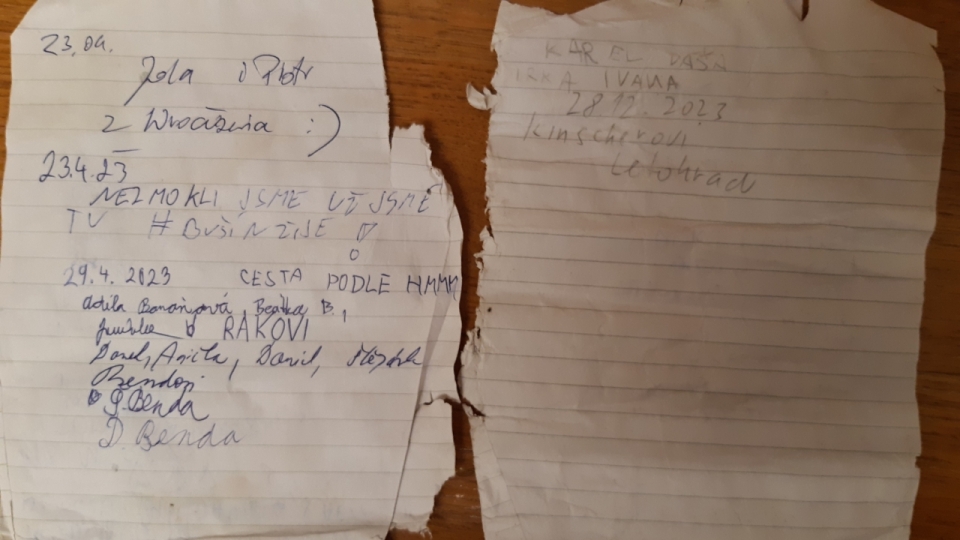 23.04.
Jola i Piotr
z Wrocławia :)
23.4.23
NEZMOKLI JSME UŽ JSME
TU # DUŠÍN ŽIJE !
29.4.2023 CESTA PODLE HMMM
Adéla Bonaňyová, Beátka B.,
RAKOVI
Anita, David,
Bendovi
J. Benda
D. Benda
KAREL DÁŠA
IRKA IVANA
28.12.2023
Kinscherovi
Letohrad